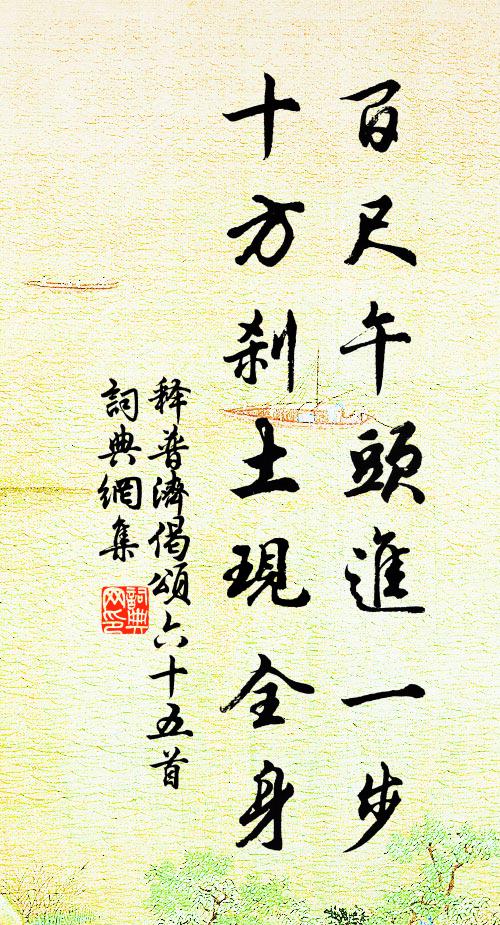 百尺午頭進一步
十方刹土現全身
释普濟偈頌六十五首
詞典網集
詞典
网印